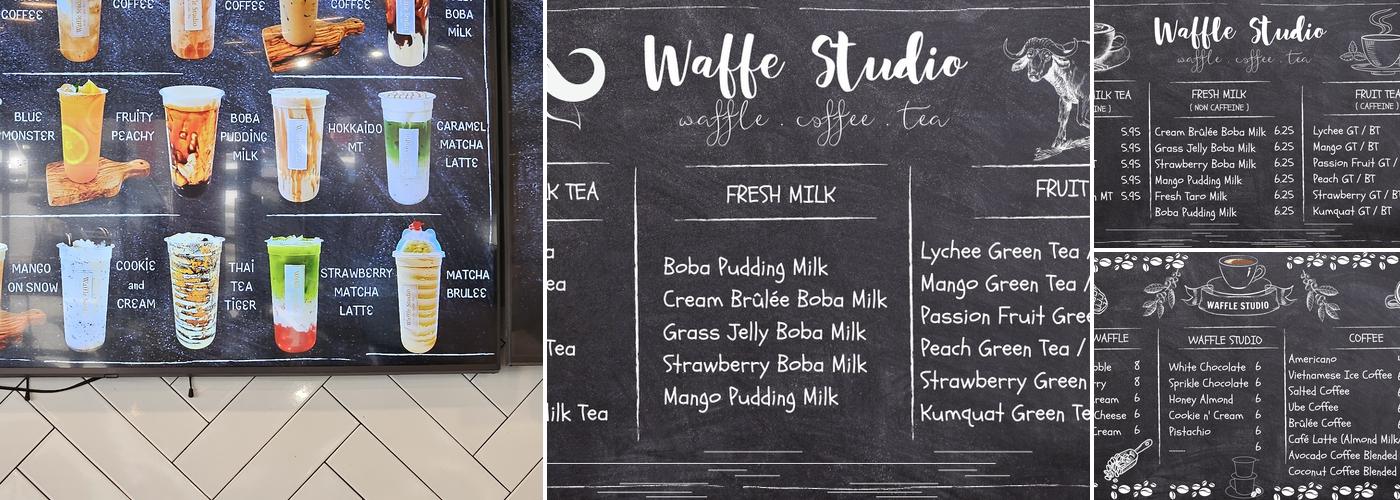 COFFEE
COFFEE
COFFEE
BOBA
MILK
BLUE
MONSTER
FRUITY
PEACHY
BOBA
PUDDING
MILK
HOKKAIDO
MT
CARAMEL
MATCHA
LATTE
MANGO
ON SNOW
COOKIE
and
CREAM
THAI
TEA
TIGER
STRAWBERRY
MATCHA
LATTE
MATCHA
BRULEE
Waffe Studio
waffle . coffee . tea
K TEA
FRESH MILK
FRUIT
ea
Tea
ilk Tea
Boba Pudding Milk
Cream Brûlée Boba Milk
Grass Jelly Boba Milk
Strawberry Boba Milk
Mango Pudding Milk
Lychee Green Tea /
Mango Green Tea /
Passion Fruit Gree
Peach Green Tea /
Strawberry Green
Kumquat Green Te
Waffle Studio
waffle . coffee . tea
MILK TEA
INE )
FRESH MILK
( NON CAFFEINE )
FRUIT TEA
( CAFFEINE )
5.95
5.95
5.95
5.95
MT 5.95
Cream Brûlée Boba Milk 6.25
Grass Jelly Boba Milk 6.25
Strawberry Boba Milk 6.25
Mango Pudding Milk 6.25
Fresh Taro Milk 6.25
Boba Pudding Milk 6.25
Lychee GT / BT
Mango GT / BT
Passion Fruit GT /
Peach GT / BT
Strawberry GT /
Kumquat GT / BT
WAFFLE STUDIO
WAFFLE
WAFFLE STUDIO
COFFEE
ble 8
ry 8
ream 6
Cheese 6
Cream 6
White Chocolate 6
Sprikle Chocolate 6
Honey Almond 6
Cookie n' Cream 6
Pistachio 6
6
Americano
Vietnamese Ice Coffee
Salted Coffee
Ube Coffee
Brûlée Coffee
Café Latte (Almond Milk
Avocado Coffee Blended
Coconut Coffee Blended